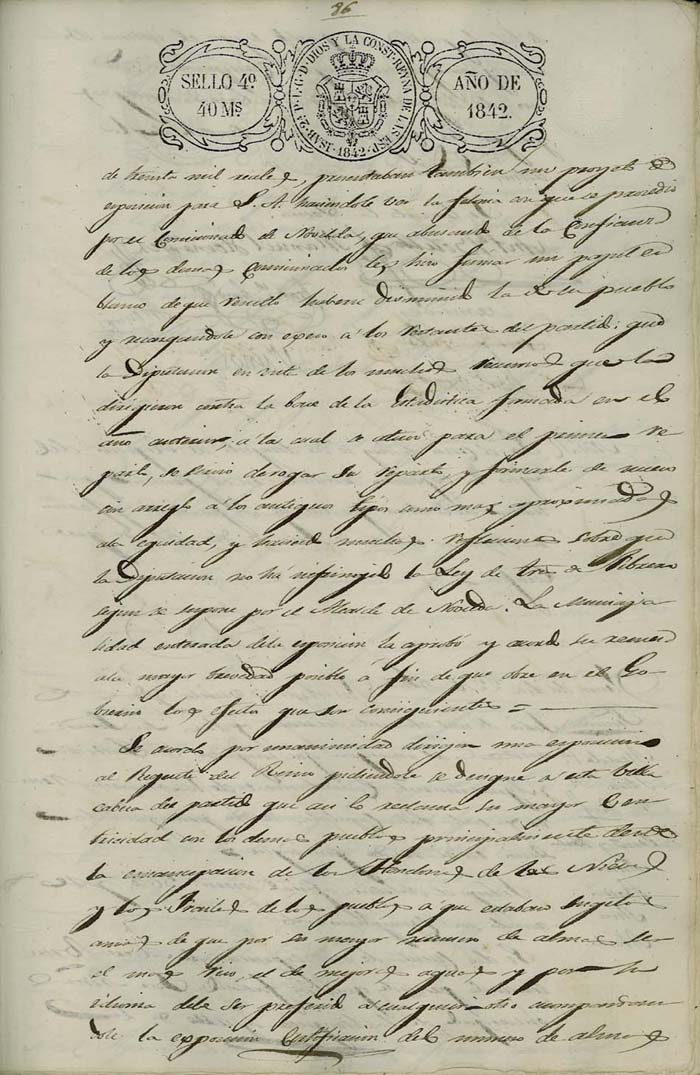 96
SELLO 4º 40 Ms
ISAB. 2ª P. L. G. D. DIOS Y LA CONST. REYNA DE LAS ESP. 1842
AÑO DE 1842.
de treinta mil reales, presentaban tambien un proyecto de
exposicion para S. A. haciendole ver la con que se procedio
por el Comicionado de Novelda, que abusando de la Confianza
de los demas Comicionados les hizo firmar un papel en
blanco de que resulto haberse disminuido la de su pueblo
y recargandole con exceso a los restantes del partido: que
la Diputacion en vista de los muchos recursos que se la
dirigieron contra la base de la Estadistica formada en el
año anterior, a la cual se atuvo para el primer re
parto, derogar su reparto, y formarle de nuevo
con arreglo á los antiguos tipos como mas aproximados
ala equidad, y haciendo muchas reflecciones sobre que
la Diputacion no há infringido la Ley de tres de Febrero
segun se supone por el Alcalde de Novelda. La Municipa
lidad enterada dela exposicion la aprobó y acordó su
ala mayor brevedad posible á fin de que obre en el Go
bierno los efectos que son conciguientes =
Se acordó por unanimidad dirigir una exposicion
al Regente del Reino pidiendole se designe a esta Villa
cabeza del partido que asi lo reclama su mayor Cen
tricidad con los demas pueblos principalmente desde
la emancipacion de los Hondones de las Nieves
y los Frailes de los pueblos a que estaban sugetos
amas de que por su mayor numero de almas ser
el mas rico, el de mejores aguas y por su
idioma debe ser preferido a cualquier otro acompañan
dose la exposicion Certificacion del numero de almas